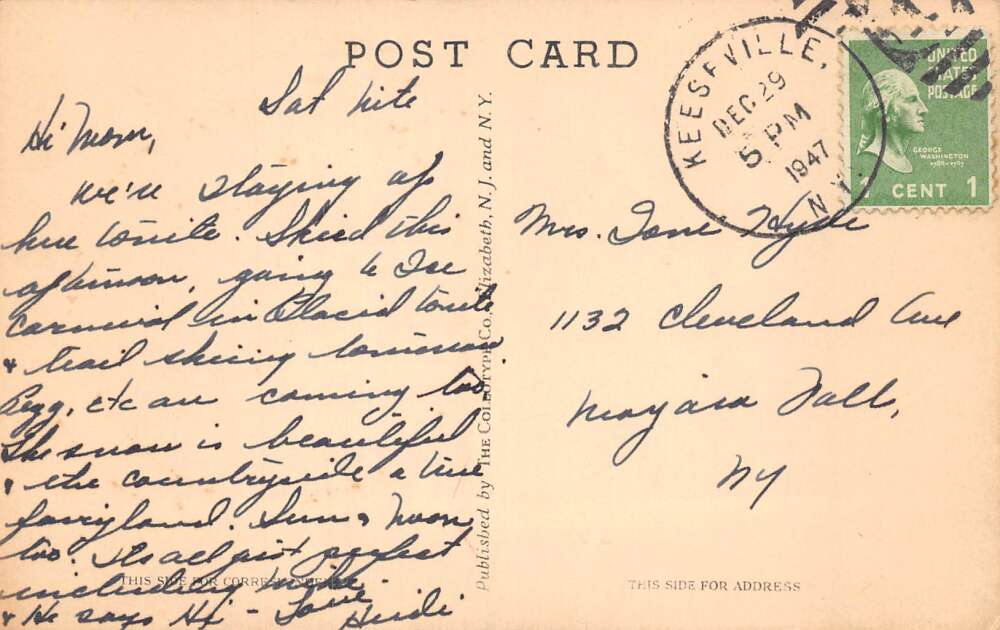 POST CARD
Sat nite
Hi Mom,
We're staying up
here tonite. Skied this
afternoon, going to Ice
carnival in Placid tonite
& trail skiing tomorrow
Pegg, etc are coming too
The snow is beautiful
& the countryside a true
fairyland. Sun & Moon
too. Its all just perfect
including
& He says Hi - Love
Heidi
THIS SIDE FOR CORRESPONDENCE
Published by THE COLLOTYPE Co., Elizabeth, N. J. and N. Y.
KEESEVILLE,
DEC 29
5 PM
1947
N.Y.
UNITED
STATES
POSTAGE
GEORGE
WASHINGTON
1789-1797
1 CENT 1
Mrs. Jane Hyde
1132 Cleveland Ave
Niagara Falls,
NY
THIS SIDE FOR ADDRESS